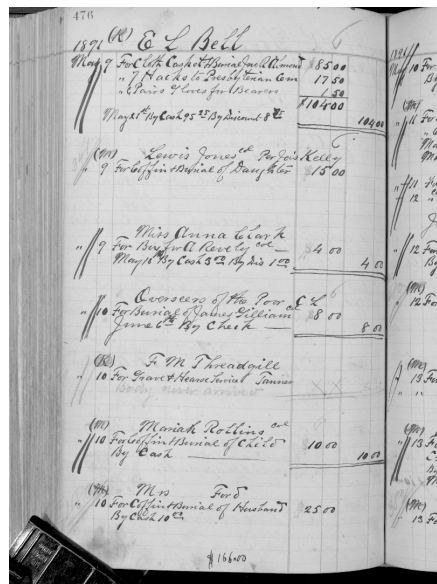 476
1891 (R) E L Bell
May 9 For Cloth Casket & Burial Jno A Almond $85 00
" 7 Hacks to Presbyterian Cem 17 50
" 6 Pairs Gloves for Bearers 1 50
$104 00
May 21st By Cash 95 25 By Discount 8 75 104 00
(M) Lewis Jones col Per Jas Kelly
9 For Coffin & Burial of Daughter $15 00
Miss Anna Clark
" 9 For Box for A Revely col $4 00
May 18th By Cash 3 00 By Dis 1 00 4 00
Overseers of the Poor C L
" 10 For Burial of James Gilliam col $8 00
June 6th By Check 8 00
(R) F. M Threadgill
" 10 For Grave & Hearse Service Tanner
Body never arrived
(M) Mariah Rollins col
" 10 For Coffin & Burial of Child 10 00
By Cash 10 00
(M) Mrs Ford
" 10 For Coffin & Burial of Husband 25 00
By Cash 10 00
$166.00
1891
May 10 For
(M)
" 11 For
" 11
" 12
" 12 For
(M)
12 For
" 13 For
" 13 For
(M)
" 13 For